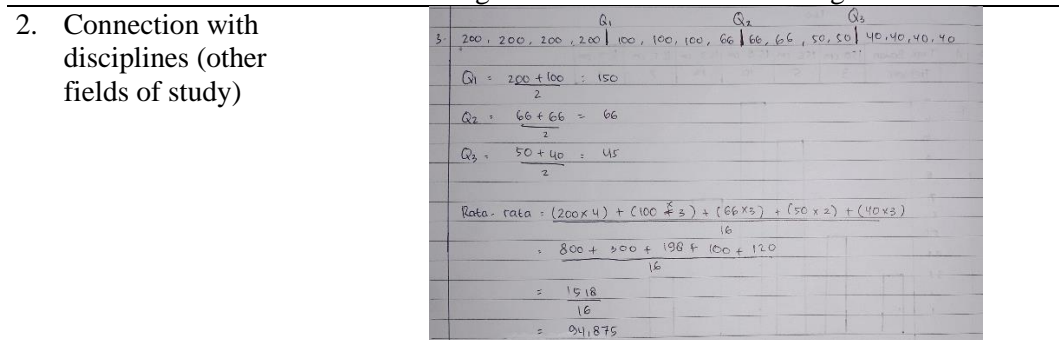 2. Connection with
disciplines (other
fields of study)
Q1 Q2 Q3
3. 200, 200, 200, 200 | 100, 100, 100, 66 | 66, 66, 50, 50 | 40, 40, 40, 40
Q1 = 200 + 100 = 150
2
Q2 = 66 + 66 = 66
2
Q3 = 50 + 40 = 45
2
Rata-rata = (200 x 4) + (100 x 3) + (66 x 3) + (50 x 2) + (40 x 3)
16
= 800 + 300 + 198 + 100 + 120
16
= 1518
16
= 94,875